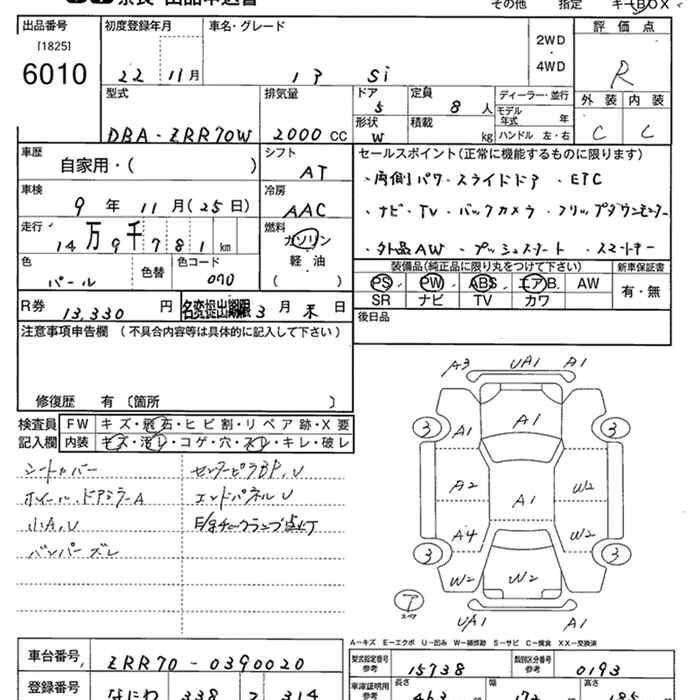 その他 指定 キーBOX
出品番号 初度登録年月 車名・グレード 評価点
[1825]
6010
22 11月 13 Si 2WD・4WD R
型式 排気量 ドア 定員 ディーラー・並行 外装 内装
5 8人 モデル年式 年
DBA-ZRR70W 2000CC 形状 W 積載 kg ハンドル 左・右 C C
車歴 シフト セールスポイント(正常に機能するものに限ります)
自家用・( ) AT ・両側パワースライドドア ・ETC
車検 冷房
9年 11月(25日) AAC ・ナビ・TV・バックカメラ・フリップダウンモニター
走行 燃料
14万9千781km ガソリン ・外品AW ・プッシュスタート ・スマートキー
色 色替 色コード 軽・油 装備品(純正品に限り丸をつけて下さい) 新車保証書
パール 070 ( ) PS PW ABS エアB. AW 有・無
SR ナビ TV カワ
R券 13,330円 名変提出期限 3月末日 後日品
注意事項申告欄 (不具合内容等は具体的に記入して下さい)
修復歴 有〔箇所 〕
検査員 FW キズ・飛石・ヒビ割・リペア跡・X要
記入欄 内装 キズ・汚レ・コゲ・穴・スレ・キレ・破レ
シートカバー センターピラBP,U
ホイール、ドアミラーA エンドパネルU
小A,U E/gチェックランプ点灯
バンパーズレ
A3 UA1 A1
3 A1 A1 3
A2 A1 W2
A4 W2
3 W2 W2 3
ア
スペア
UA1 A1
A-キズ E-エクボ U-凹み W-補修跡 S-サビ C-腐食 XX-交換済
車台番号 ZRR70-0390020 型式指定番号 参考 15738 類別区分番号 参考 0193
登録番号 なにわ 338 314 車庫証明用 参考 長さ 463 幅 172 高さ 185